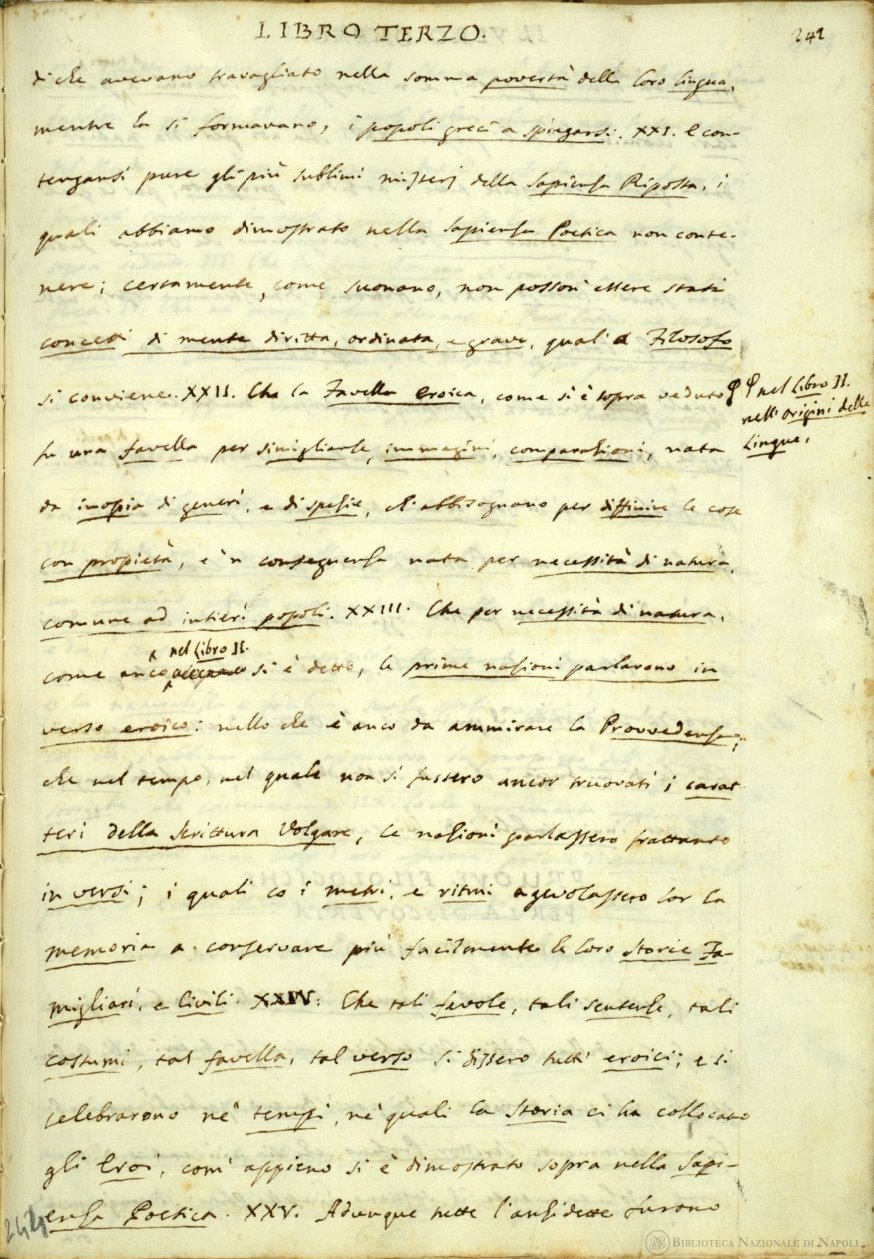 LIBRO TERZO.
242
di che avevano travagliato nella somma povertà della loro lingua,
mentre la si formavano, i popoli greci a spiegarsi. XXI. E con-
tengansi pure gli più sublimi misterj della Sapienza Riposta, i
quali abbiamo dimostrato nella Sapienza Poetica non conte-
nere; certamente, come suonano, non posson' essere stati
concetti di mente diritta, ordinata, e grave, qual' a Filosofo
si conviene. XXII. Che la Favella Eroica, come si è sopra veduto
nel Libro II.
nell' origini delle
Lingue,
fu una favella per simiglianze, immagini, comparazioni, nata
da inopia di generi, e di spezie, ch' abbisognano per diffinire le cose
con propietà, e 'n conseguenza nata per necessità di natura,
comune ad intieri popoli. XXIII. Che per necessità di natura,
nel Libro II.
come anco si è detto, le prime nazioni parlarono in
verso eroico: nello che è anco da ammirare la Provvedenza,
che nel tempo, nel quale non si fussero ancor truovati i carat-
teri della Scrittura Volgare, le nazioni parlassero frattanto
in versi; i quali co i metri, e ritmi agevolassero lor la
memoria a conservare più facilmente le loro Storie Fa-
migliari, e Civili. XXIV. Che tali favole, tali sentenze, tali
costumi, tal favella, tal verso si dissero tutti eroici; e si
celebrarono ne' tempi, ne' quali la Storia ci ha collocato
gli Eroi, com' appieno si è dimostrato sopra nella Sapi-
enza Poetica. XXV. Adunque tutte l'anzidette furono
242
BIBLIOTECA NAZIONALE DI NAPOLI